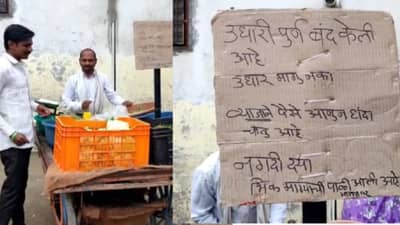 उधारी-पुर्ण बंद केली
आहे
उधार मागु नका
व्याजाने पैसे आणुन धंदा
चालु आहे
नगदी द्या
भिक मागायची पाळी आली आहे